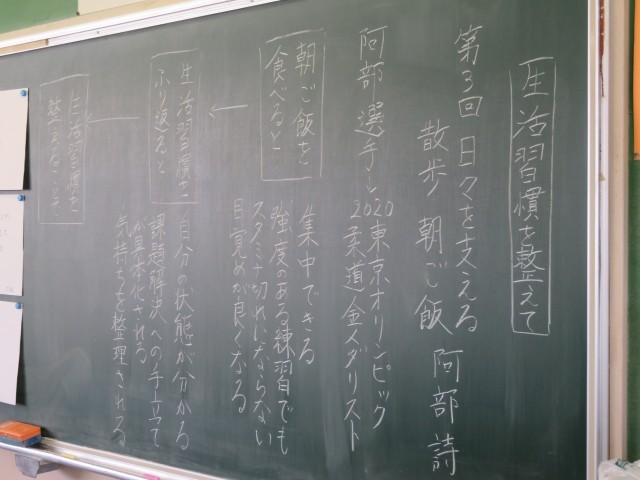 生活習慣を整えて
第3回 日々を支える
散歩 朝ご飯 阿部 詩
阿部選手:2020東京オリンピック
柔道金メダリスト
朝ご飯を
食べると
集中できる
強度のある練習でも
スタミナ切れにならない
目覚めが良くなる
生活習慣を
ふり返ると
自分の状態が分かる
課題解決への手立て
が具体化される
気持ちを整理される
生活習慣を
整えること